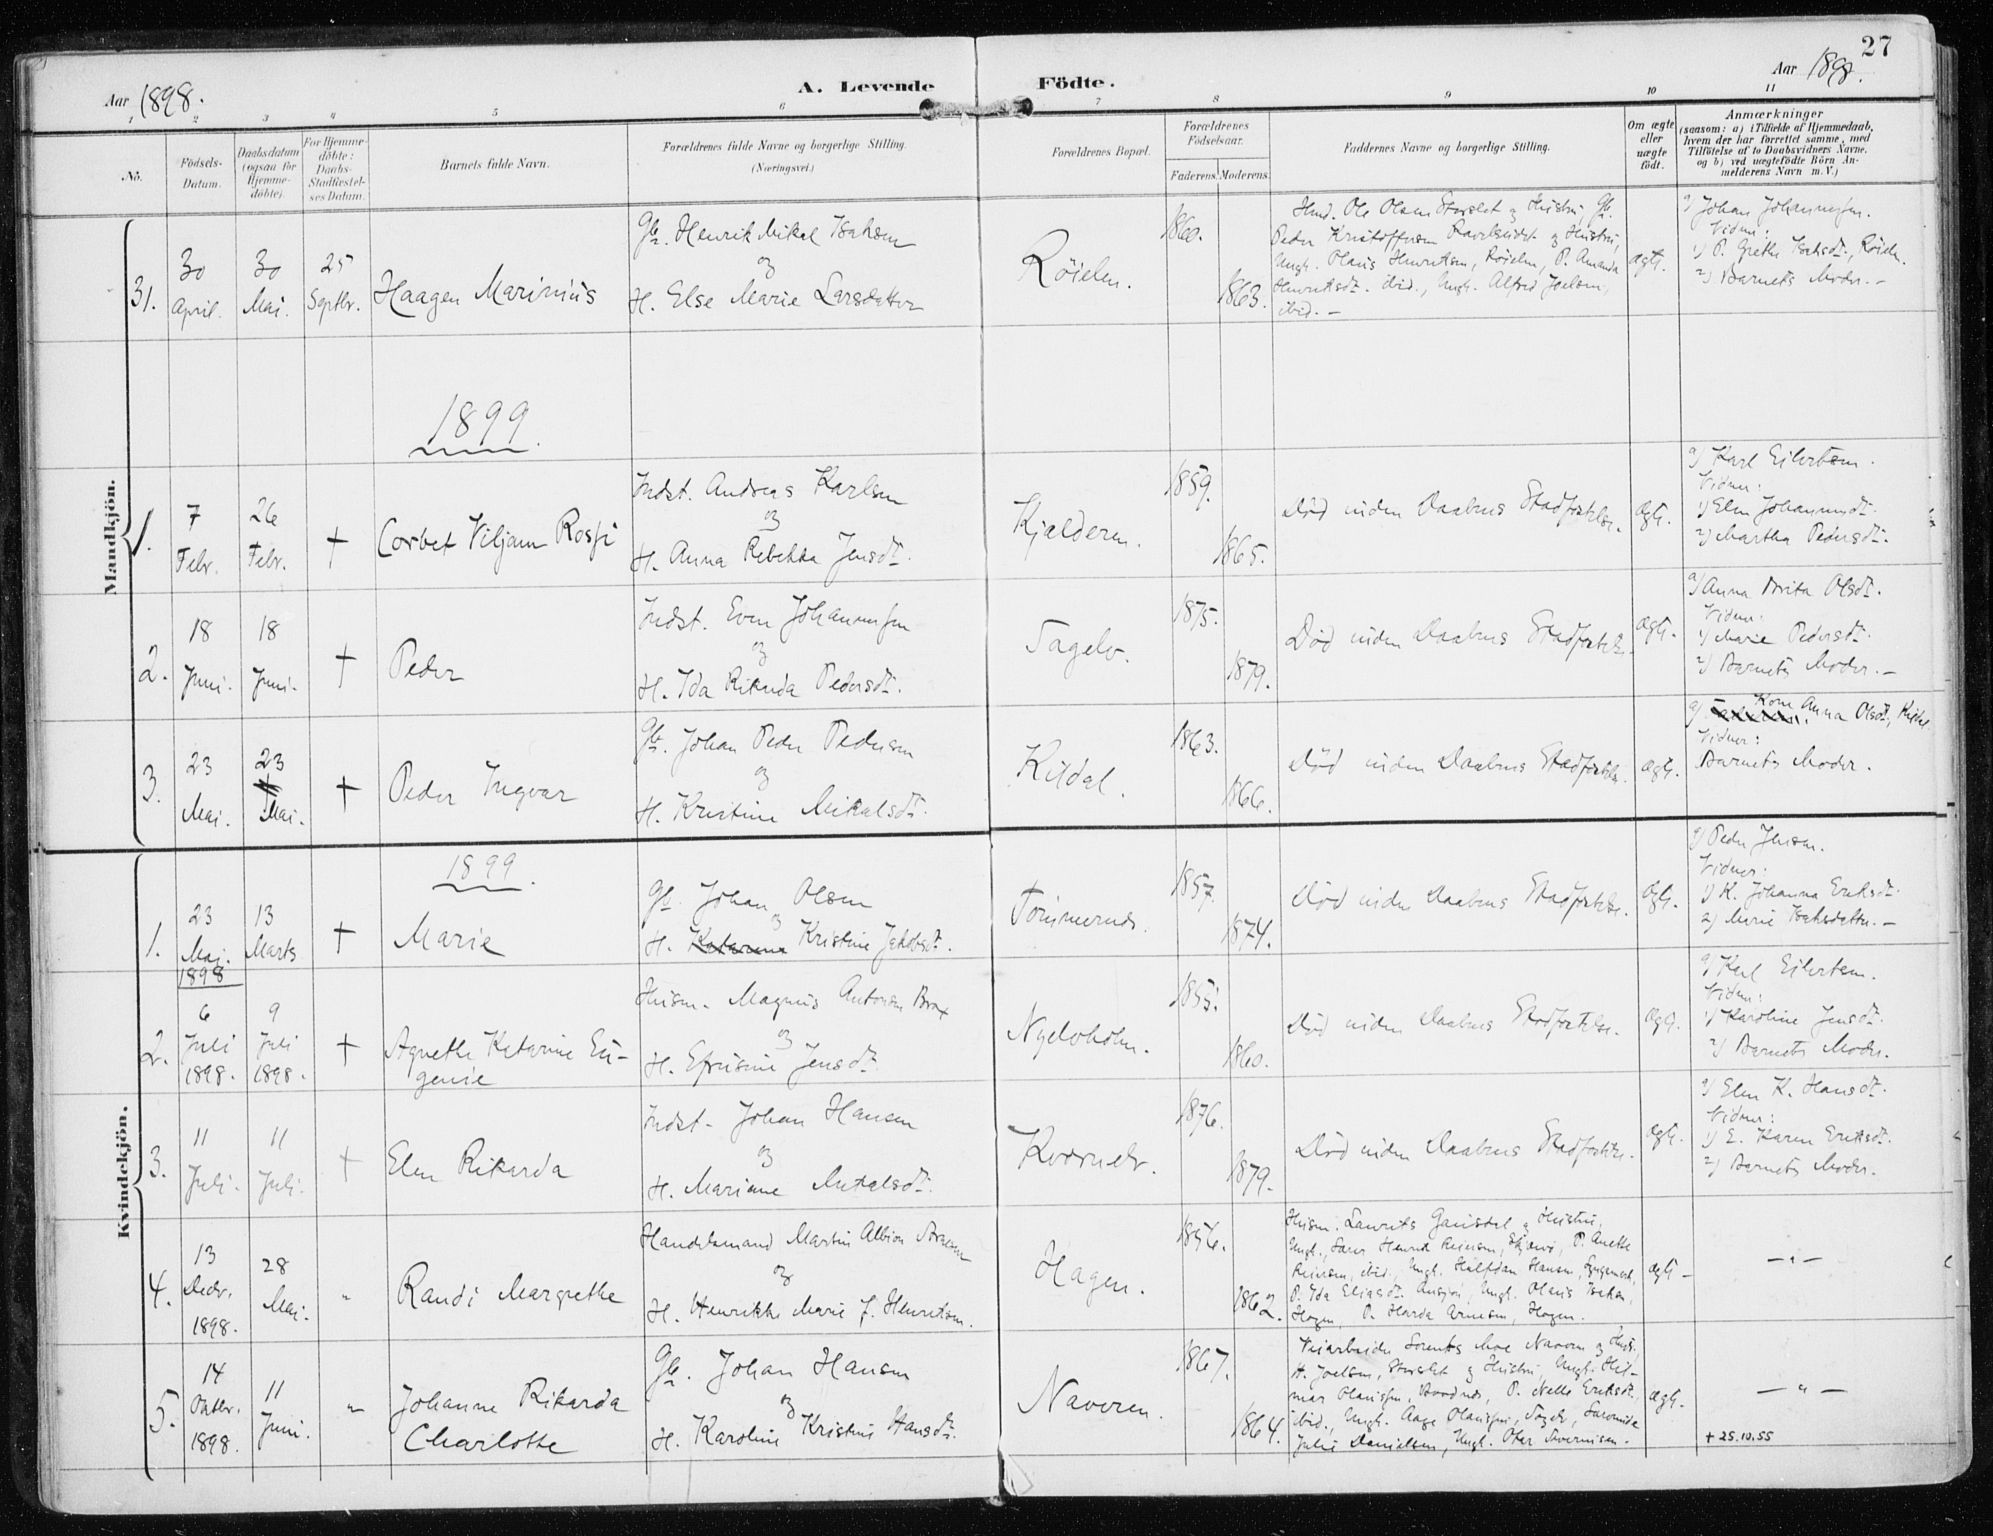 27
Aar 1898.
A. Levende Födte.
Aar 1898.
1 2 3 4 5 6 7 8 9 10 11
No.
Födsels-
Datum.
Daabsdatum
(ogsaa for
Hjemme-
döbte).
For Hjemme-
döbte:
Daabs-
Stadfæstel-
ses Datum.
Barnets fulde Navn.
Forældrenes fulde Navne og borgerlige Stilling.
(Næringsvei.)
Forældrenes Bopæl.
Forældrenes
Födselsaar.
Faderens. Moderens.
Faddernes Navne og borgerlige Stilling.
Om ægte
eller
uægte
födt.
Anmærkninger
(saasom: a) i Tilfælde af Hjemmedaab,
hvem der har forrettet samme, med
Tilföielse af to Daabsvidners Navne,
og b) ved uægtefödte Börn An-
melderens Navn m. V.)
Mandkjön.
31.
30
April.
30
Mai.
25
Septbr.
Haagen Marinius
Gb. Henrik Mikal Isaksen
og
H. Else Marie Larsdatter
Röielen.
1860.
1863.
Hmd. Ole Olsen Storslet og Hustru, Gb.
Peder Kristoffersen og Hustru,
Ungk. Olaus Henriksen, Röielen, P. Amanda
Henriksdt. ibid., Ungk. Alfred Joelsen,
ibid. –
ægte.
a) Johan Johannessen.
Vidner:
1) P. Grethe Isaksdt., Röielen.
2) Barnets Moder. –
1899.
1.
7
Febr.
26
Febr.
+
Corbet Viljam Rossi
Indst. Andreas Karlsen
og
H. Anna Rebekka Jensdt.
Kjelderen.
1859.
1865.
Död inden Daabens Stadfæstelse.
ægte.
a) Karl Eilertsen.
Vidner:
1) Elen Johannesdt.
2) Martha Pedersdt.
2.
18
Juni.
18
Juni.
+
Peder
Indst. Even Johannessen
og
H. Ida Rikarda Pedersdt.
Tagelv.
1875.
1879.
Död inden Daabens Stadfæstelse.
ægte.
a) Anna Brita Olsdt.
Vidner:
1) Marie Pedersdt.
2) Barnets Moder. –
3.
23
Mai.
23
Mai.
+
Peder Ingvar
Gb. Johan Peder Pedersen
og
H. Kristine Mikalsdt.
Kildal.
1863.
1866.
Död inden Daabens Stadfæstelse.
ægte.
a) Kone Anna Olsdt.,
Vidner:
Barnets Moder.
Kvindekjön.
1899.
1.
23
Mai.
1898
13
Marts
+
Marie
Gb. Johan Olsen
og
H. Kristine Jakobsdt.
Forsmernes
1857.
1874.
Död inden Daabens Stadfæstelse.
ægte.
a) Peder Jensen.
Vidner:
1) K. Johanna Eriksdt.
2) Marie Isaksdatter. –
2.
6
Juli
1898.
9
Juli
1898.
+
Agnethe Katarine Eu-
genie
Husm. Magnus Antonsen Brox
og
H. Efrusine Jensdt.
Nyelvholm.
1855.
1860.
Död inden Daabens Stadfæstelse.
ægte.
a) Karl Eilertsen.
Vidner:
1) Karoline Jensdt.
2) Barnets Moder.
3.
11
Juli.
11
Juli.
+
Elen Rikarda
Indst. Johan Hansen
og
H. Mariane Mikalsdt.
Kværnelv.
1876.
1879.
Död inden Daabens Stadfæstelse.
ægte.
a) Elen K. Hansdt.
Vidner:
1) E. Karen Eriksdt.
2) Barnets Moder.
4.
13
Decbr.
1898.
28
Mai.
"
Randi Margrethe
Handelsmand Martin Albion Arnesen
og
H. Henrikke Marie f. Henriksen.
Hagen.
1856.
1862.
Husm. Laurits Gausdal og Hustru,
Ungk., Henrik Reiersen, Skjervö, P. Anette
Reiersen, ibid., Ungk. Halfdan Hansen, Lyngmark,
P. Ida Eliasdt. Ungk. Olaus Isaksen,
Hagen, P. Harda Arnesen, Hagen.
ægte –
— " —
5.
14
Oktbr.
1898.
11
Juni.
"
Johanne Rikarda
Charlotte
Gb. Johan Hansen
og
H. Karoline Kristine Hansdt.
Naveren.
1867.
1864.
Veiarbeider Moe Naveren og Hust.,
H. Joelsen, Storslet og Hustru, Ungk. Hil-
mar Olaussen, P. Nelle Eriksdt.
ibid., Ungk. Aage Olaussen,
Julie Danielsen, Ungk.
ægte.
— " —
+ 25.10.55